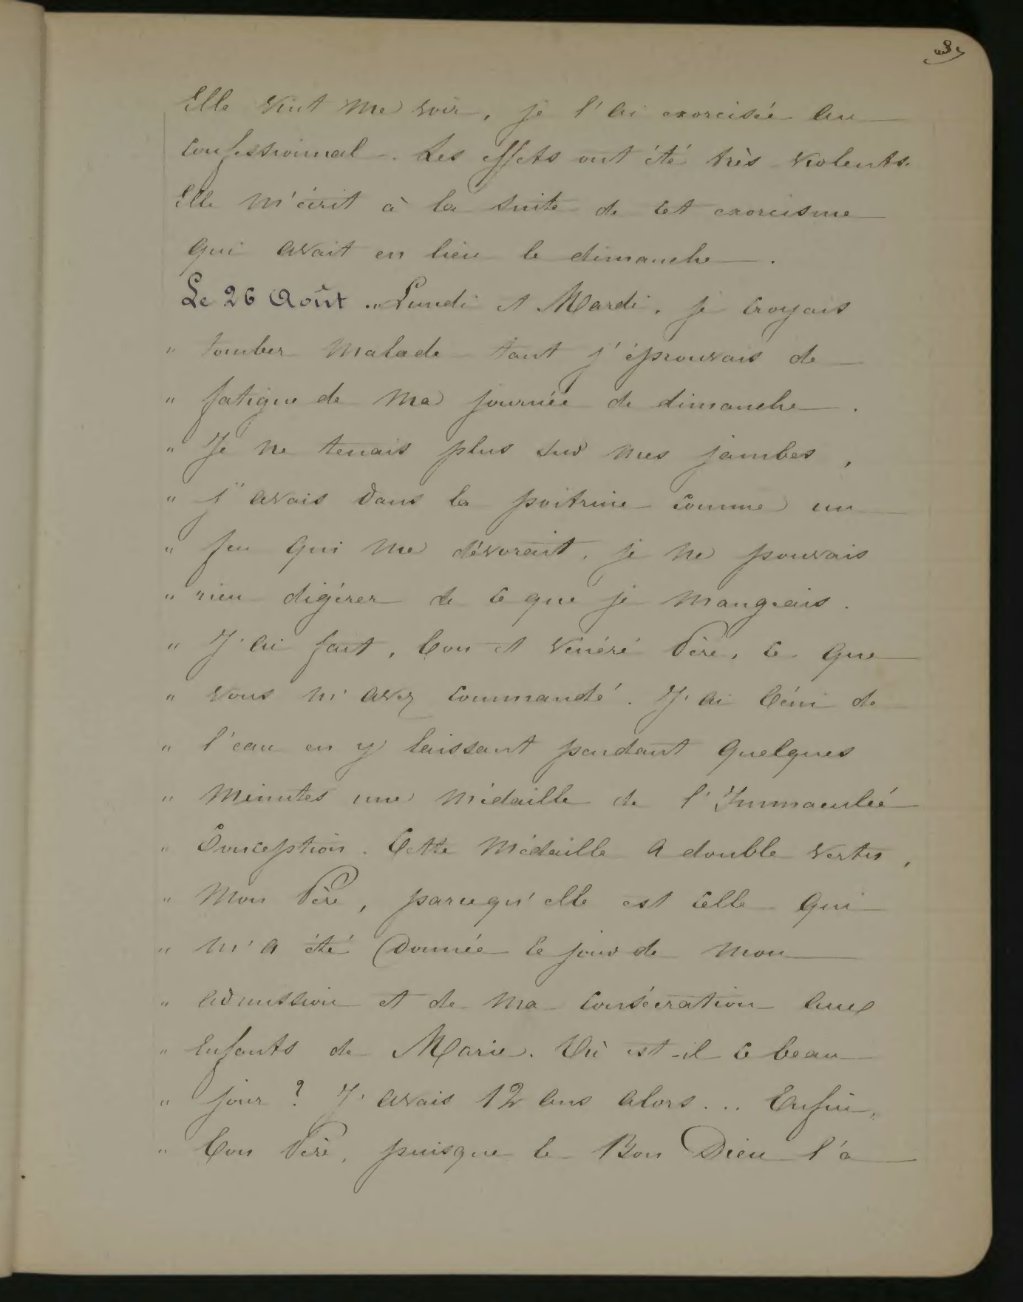 Elle vint me voir, je l'ai exorcisée au
confessionnal. Les effets ont été très violents.
Elle m'écrit à la suite de cet exorcisme
qui avait eu lieu le dimanche.
Le 26 Août. "Lundi et Mardi, je croyais
" tomber malade tant j'éprouvais de
" fatigue de ma journée de dimanche.
" Je ne tenais plus sur mes jambes,
" j'avais dans la poitrine comme un
" feu qui me dévorait, je ne pouvais
" rien digérer de ce que je mangeais.
" J'ai fait, bon et vénéré Père, ce que
" vous m'avez commandé. J'ai béni de
" l'eau en y laissant pendant quelques
" minutes une médaille de l'Immaculée
" Conception. Cette médaille a double vertu,
" mon Père, parcequ'elle est celle qui
" m'a été donnée le jour de mon
" admission et de ma consécration aux
" Enfants de Marie. Où est-il ce beau
" jour ? J'avais 12 ans alors... Enfin,
" bon Père, puisque le Bon Dieu l'a